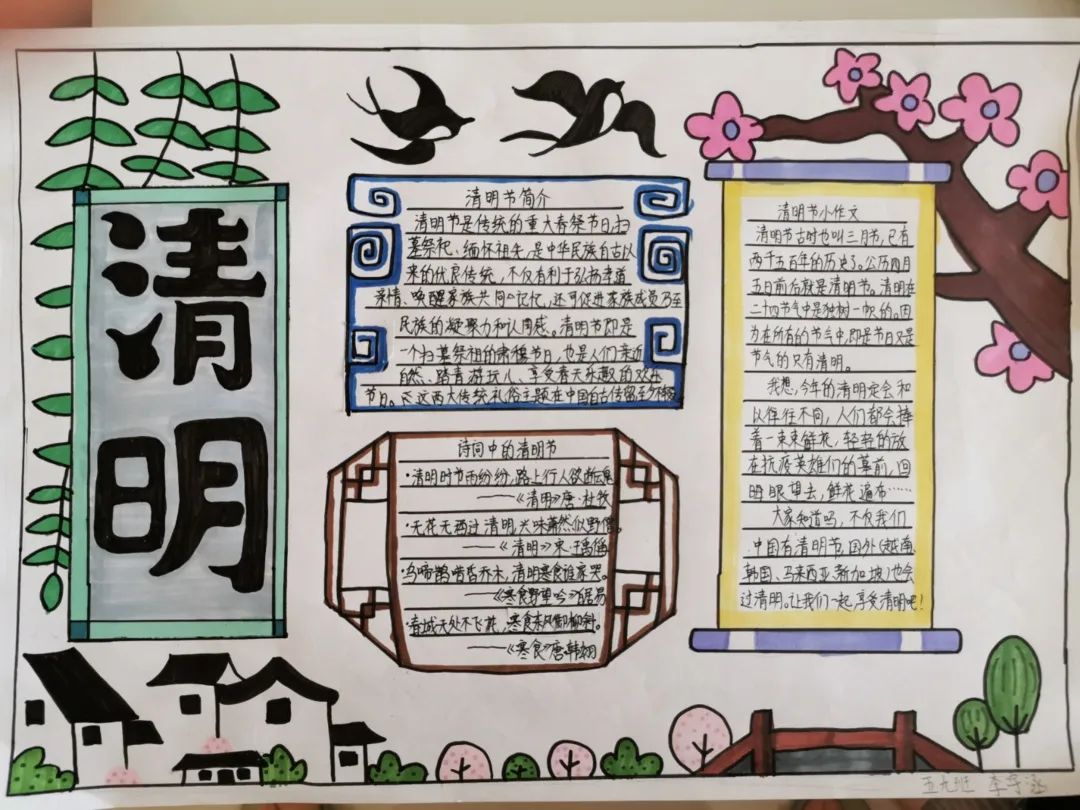 清明
清明节简介
清明节是传统的重大春祭节日,扫
墓祭祀、缅怀祖先,是中华民族自古以
来的优良传统,不仅有利于弘扬孝道
亲情、唤醒家族共同记忆,还可促进家族成员乃至
民族的凝聚力和认同感。清明节即是
一个扫墓祭祖的肃穆节日,也是人们亲近
自然、踏青游玩儿、享受春天乐趣的欢乐
节日。这两大传统礼俗主题在中国自古传留至今
诗词中的清明节
·清明时节雨纷纷,路上行人欲断魂
——《清明》唐·杜牧
·无花无酒过清明,兴味萧然似野僧。
——《清明》宋·王禹偁
·乌啼鹊噪昏乔木,清明寒食谁家哭。
——《寒食野望吟》白居易
·春城无处不飞花,寒食东风御柳斜。
——《寒食》唐·韩翃
清明节小作文
清明节古时也叫三月节,已有
两千五百年的历史了。公历四月
五日前后就是清明节。清明在
二十四节气中是独树一帜的。因
为在所有的节气中,即是节日又是
节气的只有清明。
我想,今年的清明定会和
以往不同,人们都会捧
着一束束鲜花,轻轻的放
在抗疫英雄们的墓前,
眼望去,鲜花遍布……
大家知道吗,不仅我们
中国有清明节,国外(越南、
韩国、马来西亚、新加坡)也会
过清明。让我们一起享受清明吧!
班 李